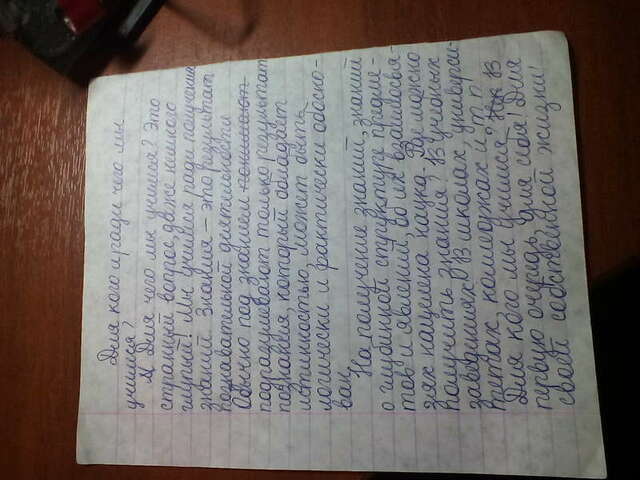 Для кого и ради чего мы
учимся?
И Для чего мы учимся? Это
странный вопрос, даже немного
глупый! Мы учимся ради получения
знаний. Знания – это результат
познавательной деятельности
Обычно под знанием понимают
подразумевают только результат
познания, который обладает
истинностью, может быть
логически и фактически обосно-
ван.
На получение знаний, знаний
о глубинной структуре предме-
тов и явлений, об их взаимосвя-
зях нацелена наука. Где можно
получить знания? В учебных
заведениях: В школах, универси-
тетах, колледжах и т.п.
Для кого мы учимся? Как В
первую очередь для себя! Для
своей собственной жизни!